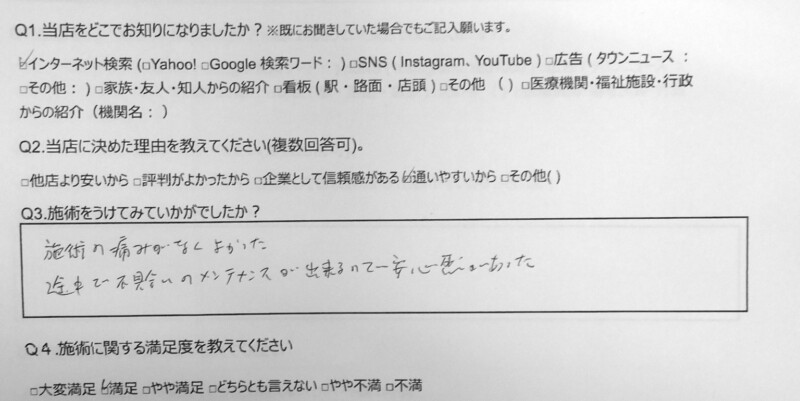 Q1.当店をどこでお知りになりましたか？※既にお聞きしていた場合でもご記入願います。
☑インターネット検索 (□Yahoo! □Google 検索ワード： ) □SNS ( Instagram、YouTube ) □広告 ( タウンニュース ：
□その他： ) □家族・友人・知人からの紹介 □看板 ( 駅・路面・店頭 ) □その他 （ ) □医療機関・福祉施設・行政
からの紹介（機関名： ）
Q2.当店に決めた理由を教えてください(複数回答可)。
□他店より安いから □評判がよかったから □企業として信頼感がある ☑通いやすいから □その他( )
Q3.施術をうけてみていかがでしたか？
施術の痛みがなくよかった
途中で不具合いのメンテナンスが出来るので安心感があった
Q４.施術に関する満足度を教えてください
□大変満足 ☑満足 □やや満足 □どちらとも言えない □やや不満 □不満